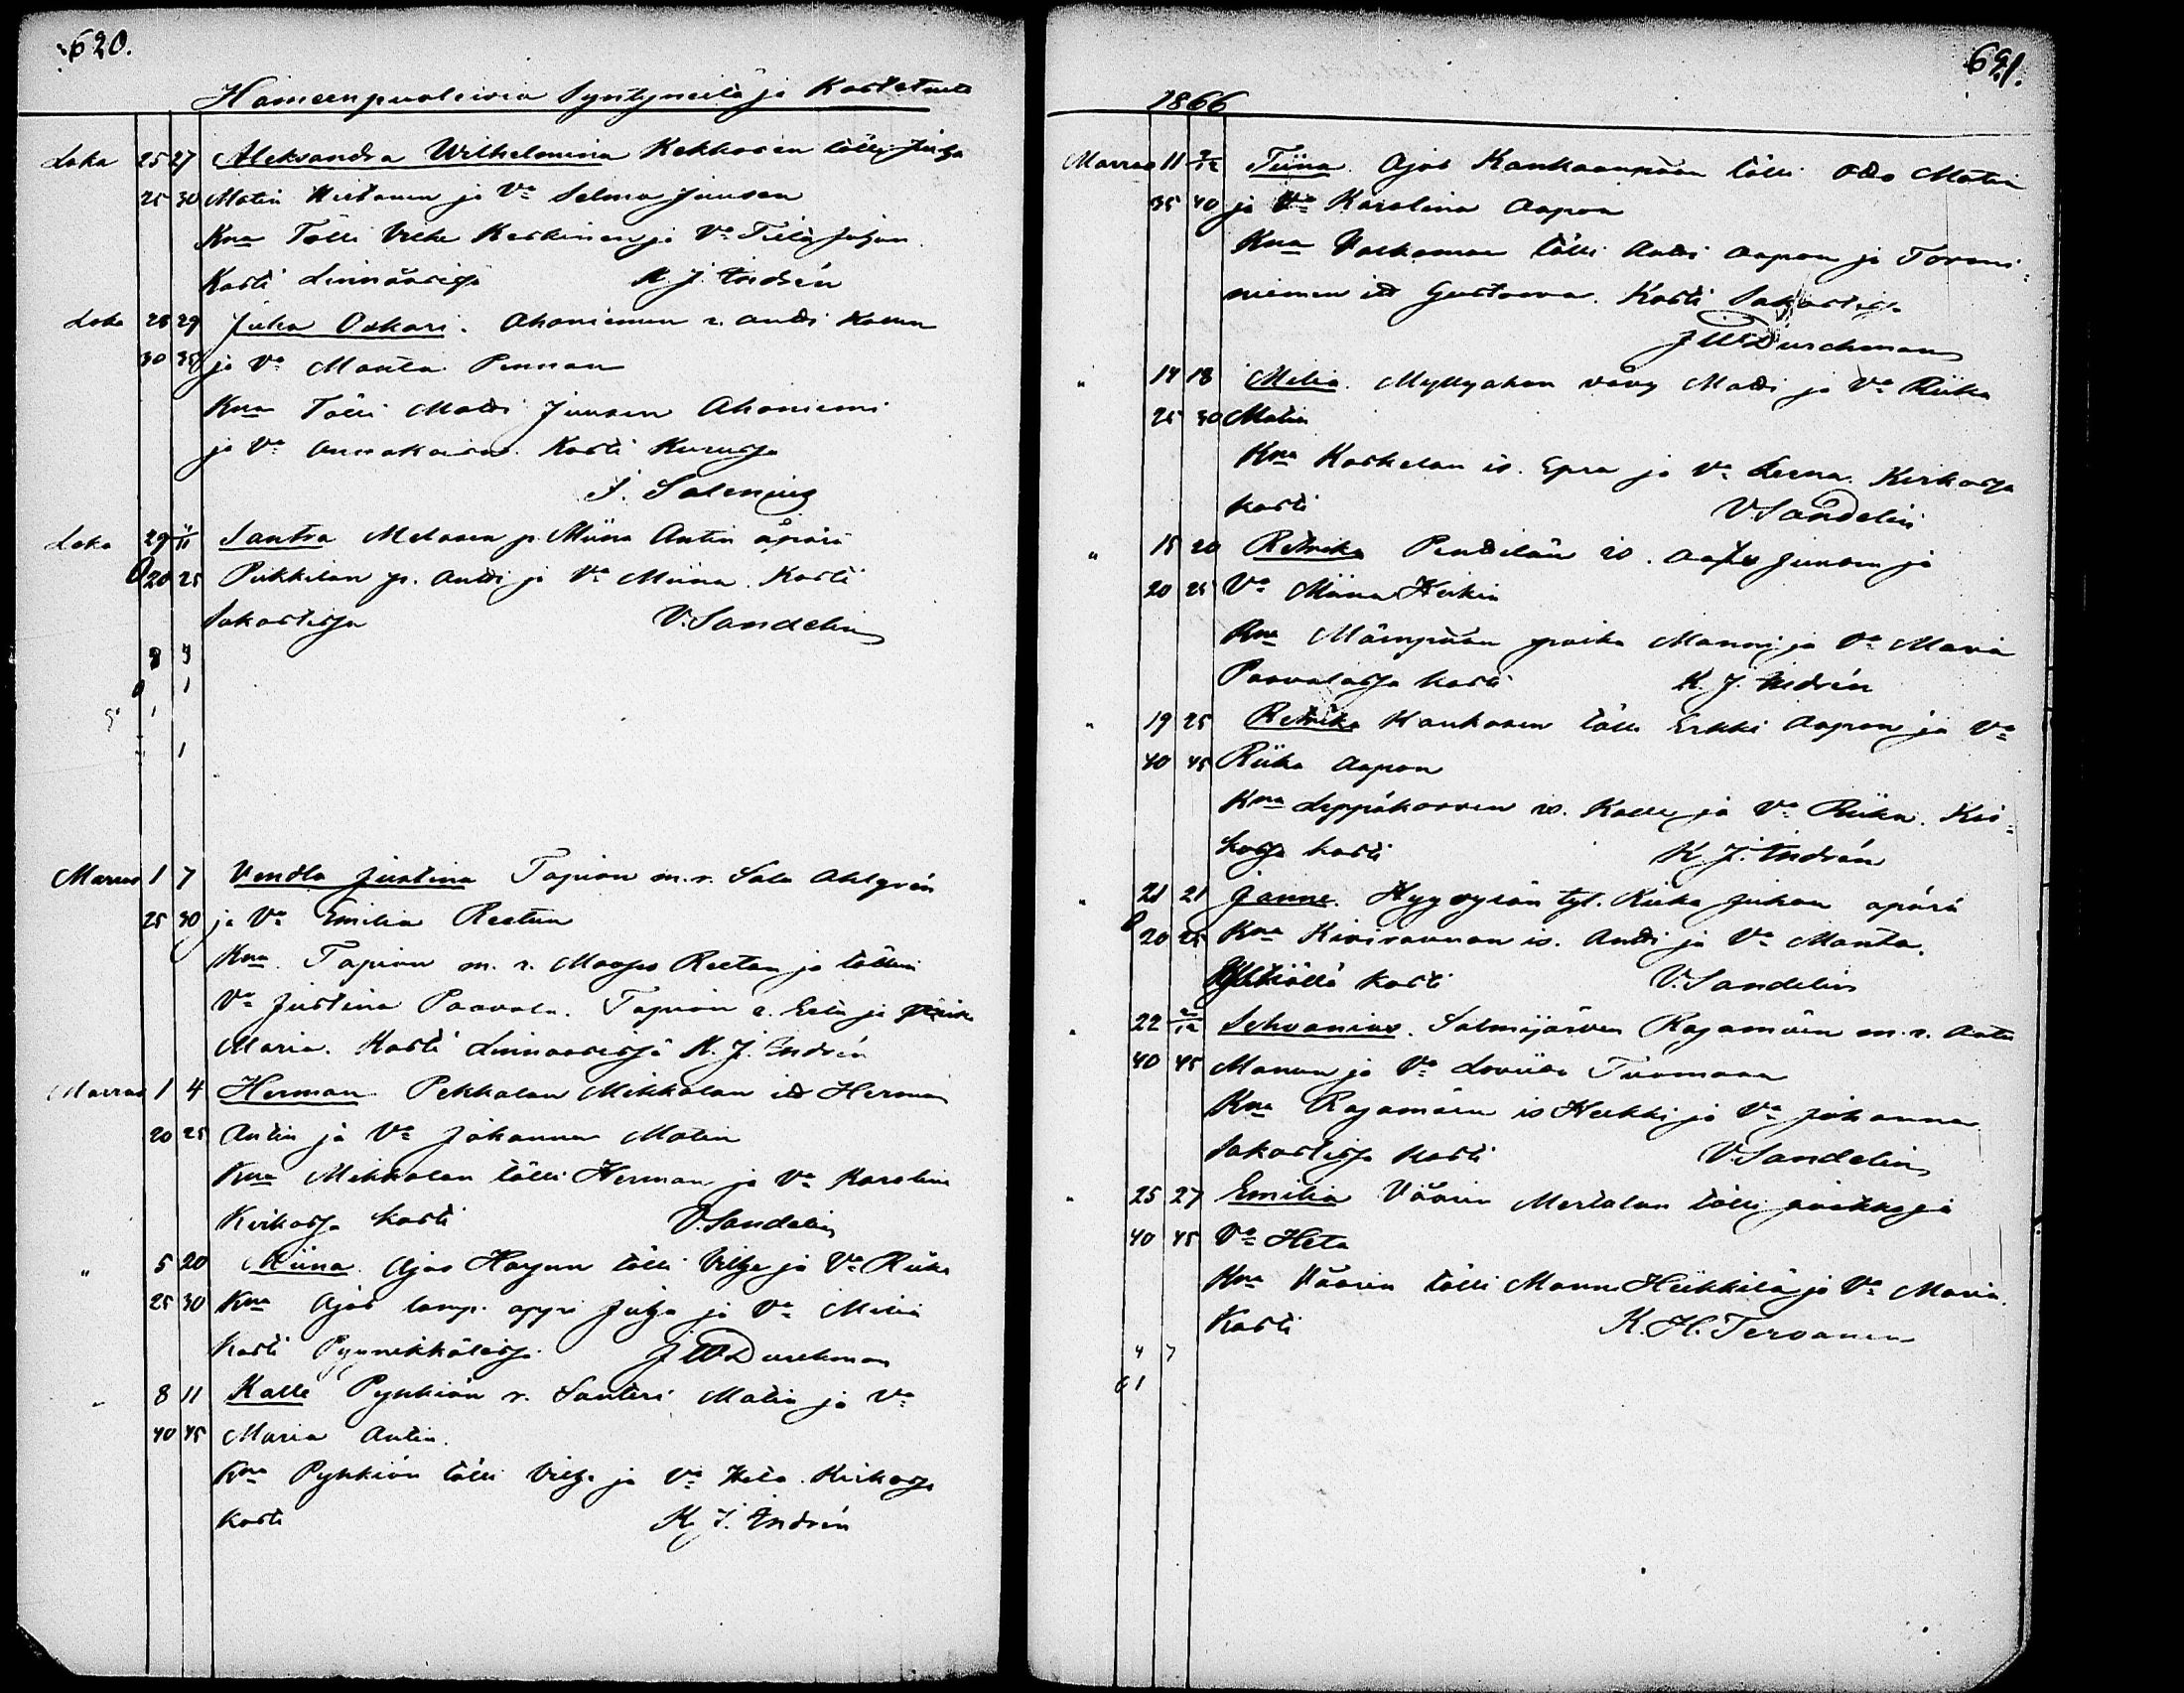 620.
Hämeenpuoleisia Syntyneitä ja Kastetuita
Loka 25 27 Aleksandra Wilhelmina Kekkosen tölli Juha
25 30 Matin ja Va Selma Juusen
Kna Tölli Ville ja Va Tiila Juhan
Kasti Linnäärisä K. J. Indrén
Loka 28 29 Juha Oskari. Ahoniemen r. Antti
30 35 ja Va Manta Pennan
Kna Tölli Matti Juusen Ahoniemi
ja Va Annakaisa. Kasti Kurusa
J. Salenius
Loka 29 1/11 Santra Melasen p. Miina Antin äpärä
20 25 Pukkilan p. Antti ja Va Miina. Kasti
Sakarisa V. Sandelin
8 9
1
1
1
Marras 1 7 Vendla Justina Tapion m.r. Salu Ahlgrén
25 30 ja Va Emilia Reetun
Kna. Tapion m. r. Reetan ja töllin
Va Justina Paavola. Tapion r. Eetu ja
Maria. Kasti Linnaarisa K. J. Indrén
Marras 1 4 Herman Pekkalan Mikkolan it Herman
20 25 Antin ja Va Johanna Matin
Kna Mikkolan tölli Herman ja Va Karolina
Kirkosa kasti V. Sandelin
" 5 20 Miina. Ajos Harjun tölli Ville ja Va Riika
25 30 Kna Ajos lamp. Juha ja Va Milia
Kasti Pynnikkälässä JWDurchman
" 8 11 Kalle Pynkiön r. Santeri Matin ja Va
40 45 Maria Antin.
Kna Pynkiön tölli Ville ja Va Heta. Kirkosa
kasti K. J. Indrén
621.
1866
Marras 11 9/12 Tiina. Ajos Kankaanpään tölli Otto Matin
35 40 ja Va Karolina Aapon
Kna Valkaman tölli Antti Aapon ja Torani-
niemen it Gustaava. Kasti Sakarisa
JWDurchman
" 14 18 Milia. Myllyahon vävy Matti ja Va Riika
25 30 Matin
Kna Koskelan is. Epra ja Va Leena. Kirkosa
kasti V. Sandelin
" 15 20 Retrika Penttilän is. Juusen ja
20 25 Va Miina Heikin
Kna Mämpään poika Manni ja Va Maria
Paavolasa kasti K. J. Indrén
" 19 25 Retrika Kaukosen tölli Erkki Aapon ja Va
40 45 Riika Aapon
Kna Leppäkorven is. Kalle ja Va Riika. Kir-
kosa kasti K. J. Indrén
" 21 21 Janne. Hyyrysän tyt. Riika Juhan äpärä
20 25 Kna Kivirannan is. Antti ja Va Manta.
kasti V. Sandelin
" 22 12 Selvanius. Salmijärven Rajamäen m. r. Antu
40 45 Manun ja Va Loviisa Tuomaan
Kna Rajamäen is Heikki ja Va Johanna
Sakarisa kasti V. Sandelin
" 25 27 Emilia Väärin Mertalan tölli ja
40 45 Va Heta
Kna Väärin tölli Mannu Heikkilä ja Va Maria.
Kasti K. H. Tervanen
4 7
1